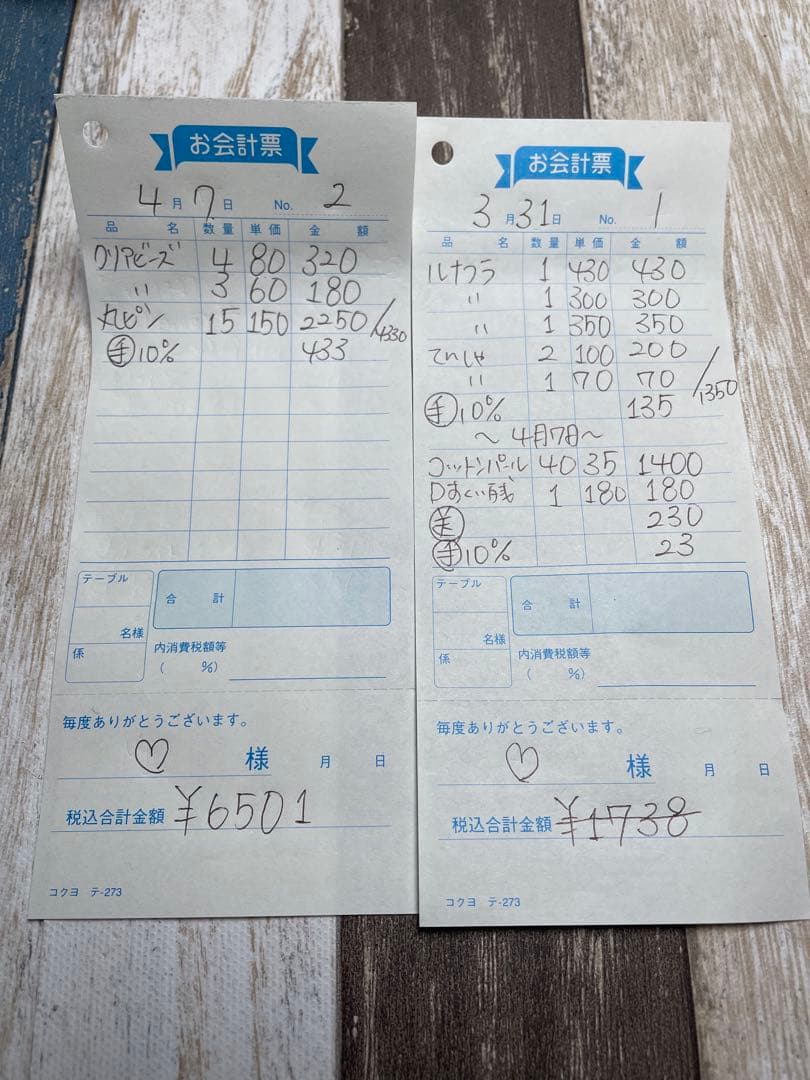 お会計票
4月7日 No. 2
品名 数量 単価 金額
クリアビーズ 4 80 320
〃 3 60 180
丸ピン 15 150 2250/4330
手10% 433
テーブル
名様
係
合計
内消費税額等
( %)
毎度ありがとうございます。
♡ 様 月 日
税込合計金額 ¥6501
コクヨ テ-273
お会計票
3月31日 No. 1
品名 数量 単価 金額
ルナフラ 1 430 430
〃 1 300 300
〃 1 350 350
てんしゃ 2 100 200
〃 1 70 70/1350
手10% 135
〜4月7日〜
コットンパール 40 35 1400
Dすくい残 1 180 180
230
手10% 23
テーブル
名様
係
合計
内消費税額等
( %)
毎度ありがとうございます。
♡ 様 月 日
税込合計金額 ¥1738
コクヨ テ-273